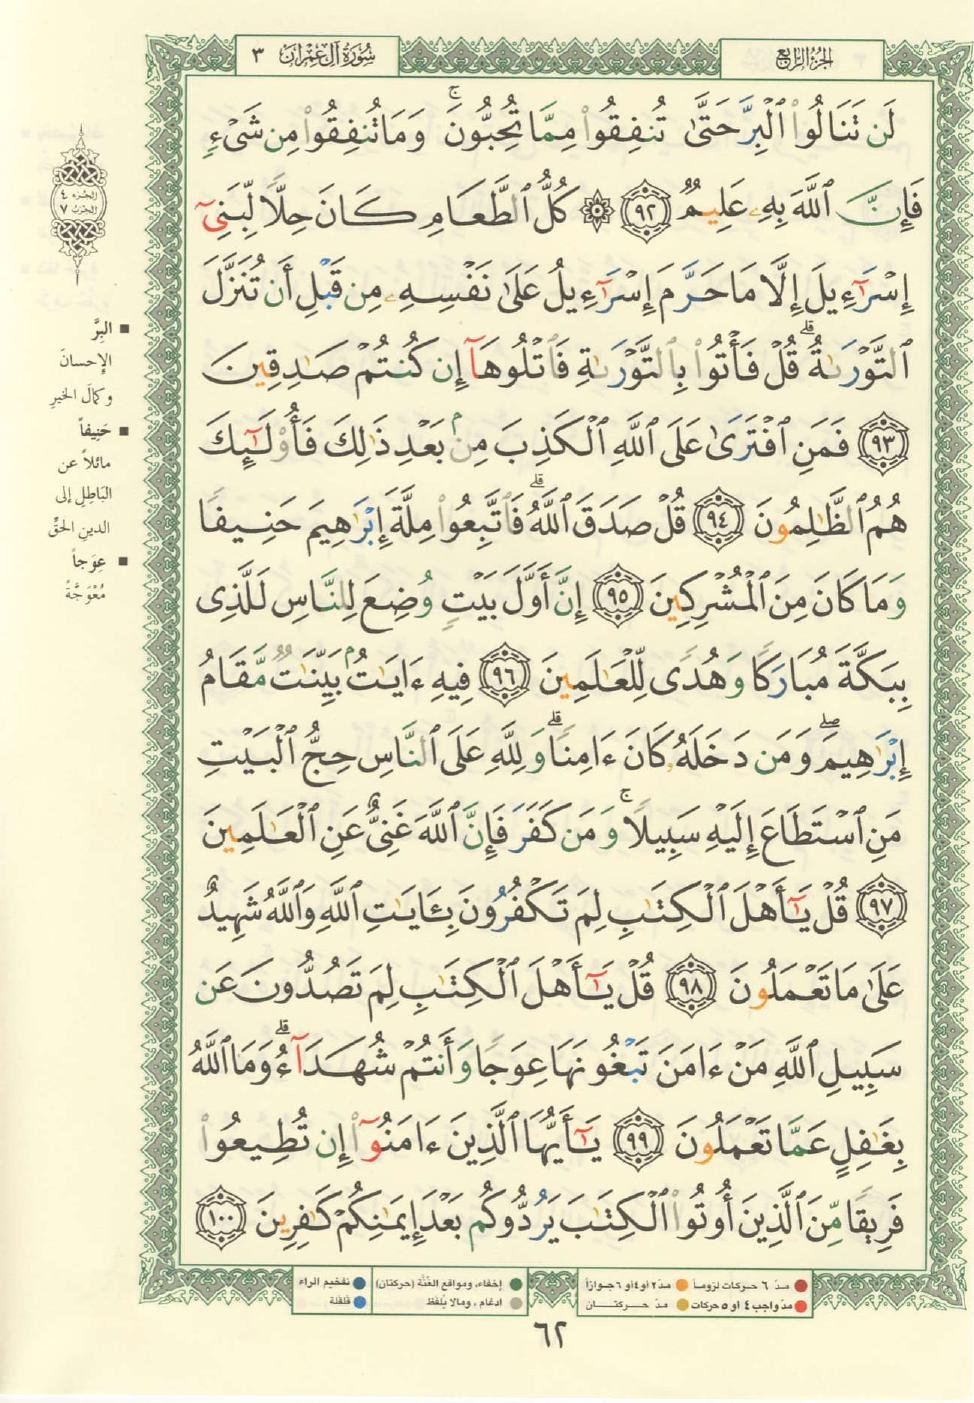 الجزء الرابع
سورة آل عمران ٣
لَن تَنَالُوا۟ ٱلْبِرَّ حَتَّىٰ تُنفِقُوا۟ مِمَّا تُحِبُّونَ ۚ وَمَا تُنفِقُوا۟ مِن شَىْءٍ
فَإِنَّ ٱللَّهَ بِهِۦ عَلِيمٌ ٩٢ ۞ كُلُّ ٱلطَّعَامِ كَانَ حِلًّا لِّبَنِىٓ
إِسْرَٰٓءِيلَ إِلَّا مَا حَرَّمَ إِسْرَٰٓءِيلُ عَلَىٰ نَفْسِهِۦ مِن قَبْلِ أَن تُنَزَّلَ
ٱلتَّوْرَىٰةُ ۗ قُلْ فَأْتُوا۟ بِٱلتَّوْرَىٰةِ فَٱتْلُوهَآ إِن كُنتُمْ صَٰدِقِينَ
٩٣ فَمَنِ ٱفْتَرَىٰ عَلَى ٱللَّهِ ٱلْكَذِبَ مِنۢ بَعْدِ ذَٰلِكَ فَأُو۟لَٰٓئِكَ
هُمُ ٱلظَّٰلِمُونَ ٩٤ قُلْ صَدَقَ ٱللَّهُ ۗ فَٱتَّبِعُوا۟ مِلَّةَ إِبْرَٰهِيمَ حَنِيفًا
وَمَا كَانَ مِنَ ٱلْمُشْرِكِينَ ٩٥ إِنَّ أَوَّلَ بَيْتٍ وُضِعَ لِلنَّاسِ لَلَّذِى
بِبَكَّةَ مُبَارَكًا وَهُدًى لِّلْعَٰلَمِينَ ٩٦ فِيهِ ءَايَٰتٌۢ بَيِّنَٰتٌ مَّقَامُ
إِبْرَٰهِيمَ ۖ وَمَن دَخَلَهُۥ كَانَ ءَامِنًا ۗ وَلِلَّهِ عَلَى ٱلنَّاسِ حِجُّ ٱلْبَيْتِ
مَنِ ٱسْتَطَاعَ إِلَيْهِ سَبِيلًا ۚ وَمَن كَفَرَ فَإِنَّ ٱللَّهَ غَنِىٌّ عَنِ ٱلْعَٰلَمِينَ
٩٧ قُلْ يَٰٓأَهْلَ ٱلْكِتَٰبِ لِمَ تَكْفُرُونَ بِـَٔايَٰتِ ٱللَّهِ وَٱللَّهُ شَهِيدٌ
عَلَىٰ مَا تَعْمَلُونَ ٩٨ قُلْ يَٰٓأَهْلَ ٱلْكِتَٰبِ لِمَ تَصُدُّونَ عَن
سَبِيلِ ٱللَّهِ مَنْ ءَامَنَ تَبْغُونَهَا عِوَجًا وَأَنتُمْ شُهَدَآءُ ۗ وَمَا ٱللَّهُ
بِغَٰفِلٍ عَمَّا تَعْمَلُونَ ٩٩ يَٰٓأَيُّهَا ٱلَّذِينَ ءَامَنُوٓا۟ إِن تُطِيعُوا۟
فَرِيقًا مِّنَ ٱلَّذِينَ أُوتُوا۟ ٱلْكِتَٰبَ يَرُدُّوكُم بَعْدَ إِيمَٰنِكُمْ كَٰفِرِينَ ١٠٠
الجزء ٤
الحزب ٧
البِرَّ
الإحسانَ
وكمالَ الخيرِ
حَنِيفاً
مائلاً عن
الباطلِ إلى
الدينِ الحقِّ
عِوَجاً
مُعْوَجَّةً
مدّ ٦ حركات لزوماً مدّ ٢ أو ٤ أو ٦ جوازاً
مدّ واجب ٤ أو ٥ حركات مدّ حركتان
إخفاء، ومواقع الغُنَّة (حركتان) تفخيم الراء
إدغام، وما لا يُلفَظ قلقلة
٦٢